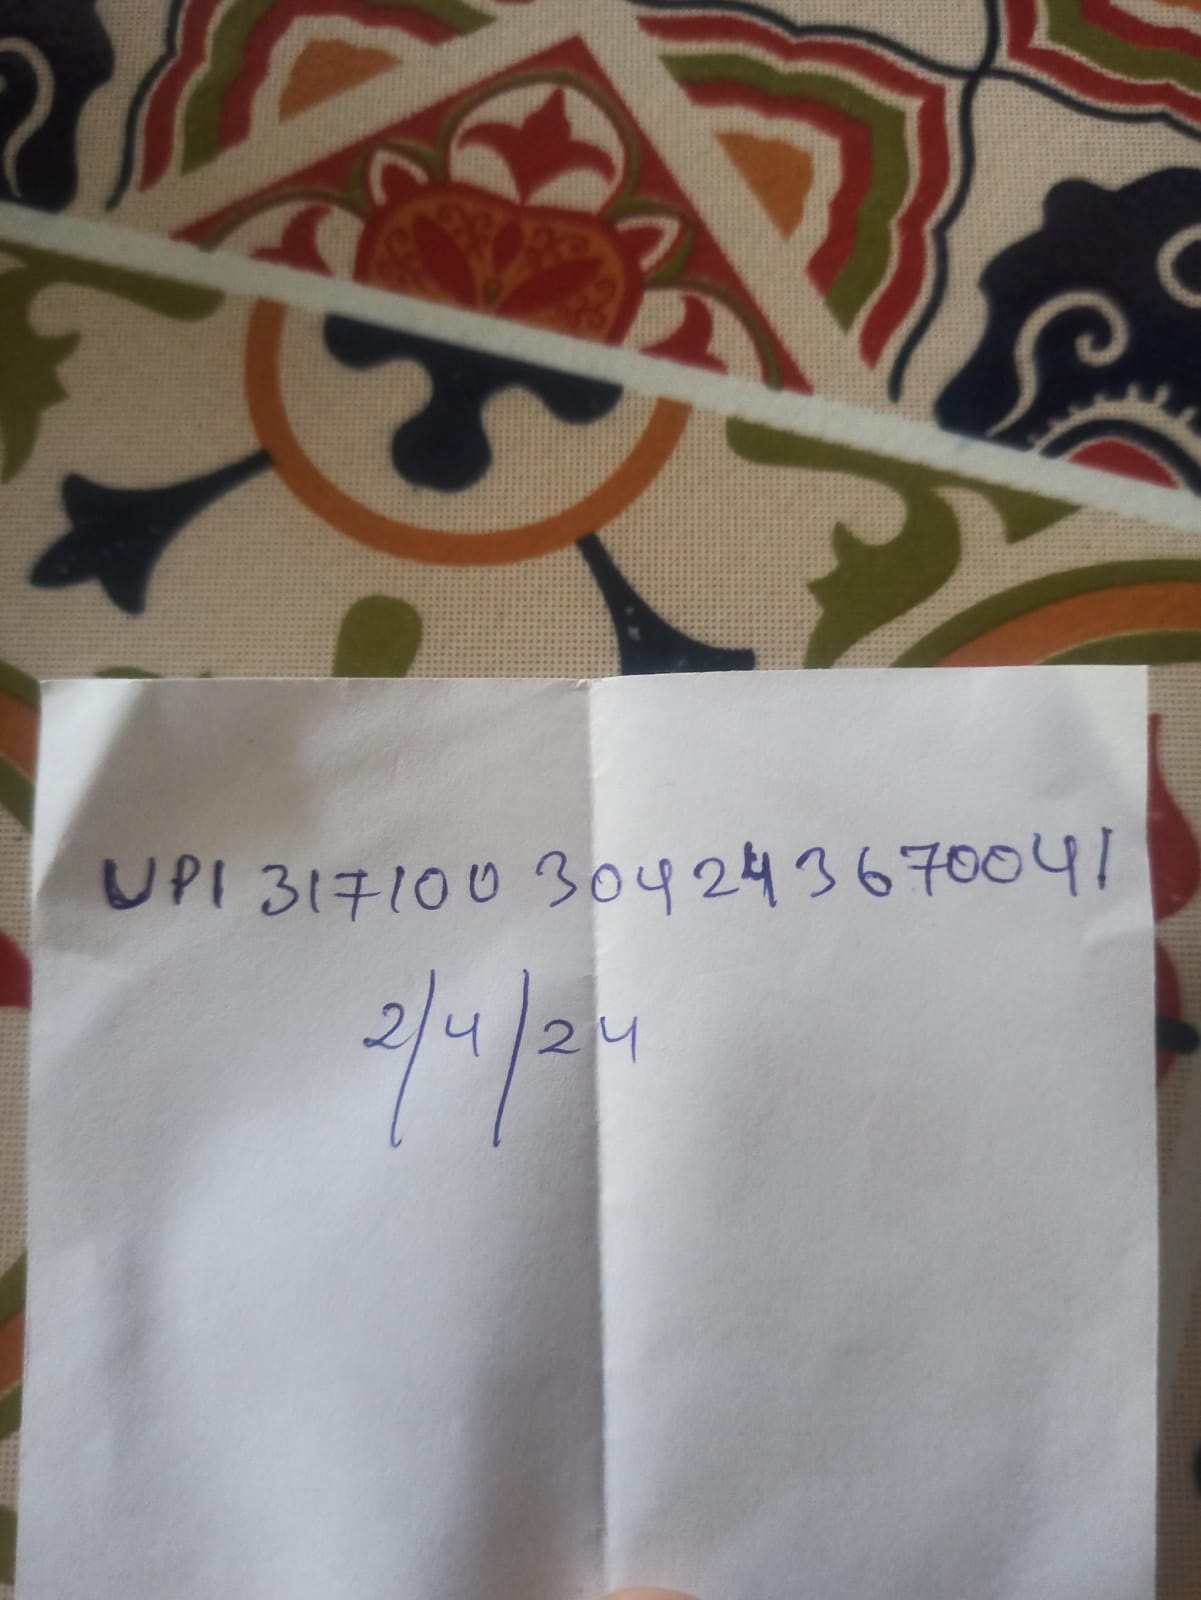 UPI 317100 304243670041
2/4/24